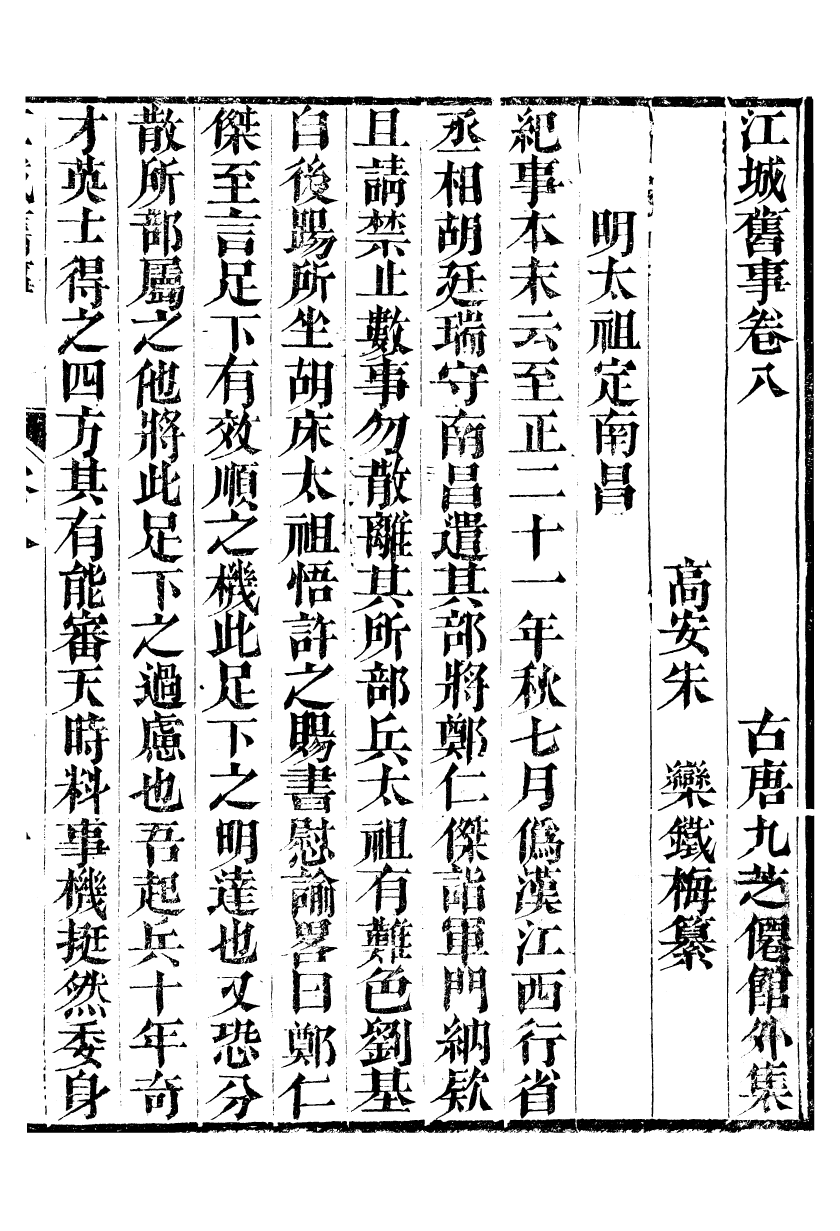 江城舊事卷八　古唐九芝僊館外集
高安朱　欒鐵梅纂
明太祖定南昌
紀事本末云至正二十一年秋七月僞漢江西行省
丞相胡廷瑞守南昌遣其部將鄭仁傑詣軍門納欵
且請禁止數事勿散離其所部兵太祖有難色劉基
自後踢所坐胡床太祖悟許之賜書慰諭畧曰鄭仁
傑至言足下有效順之機此足下之明達也又恐分
散所部屬之他將此足下之過慮也吾起兵十年奇
才英士得之四方其有能審天時料事機挺然委身